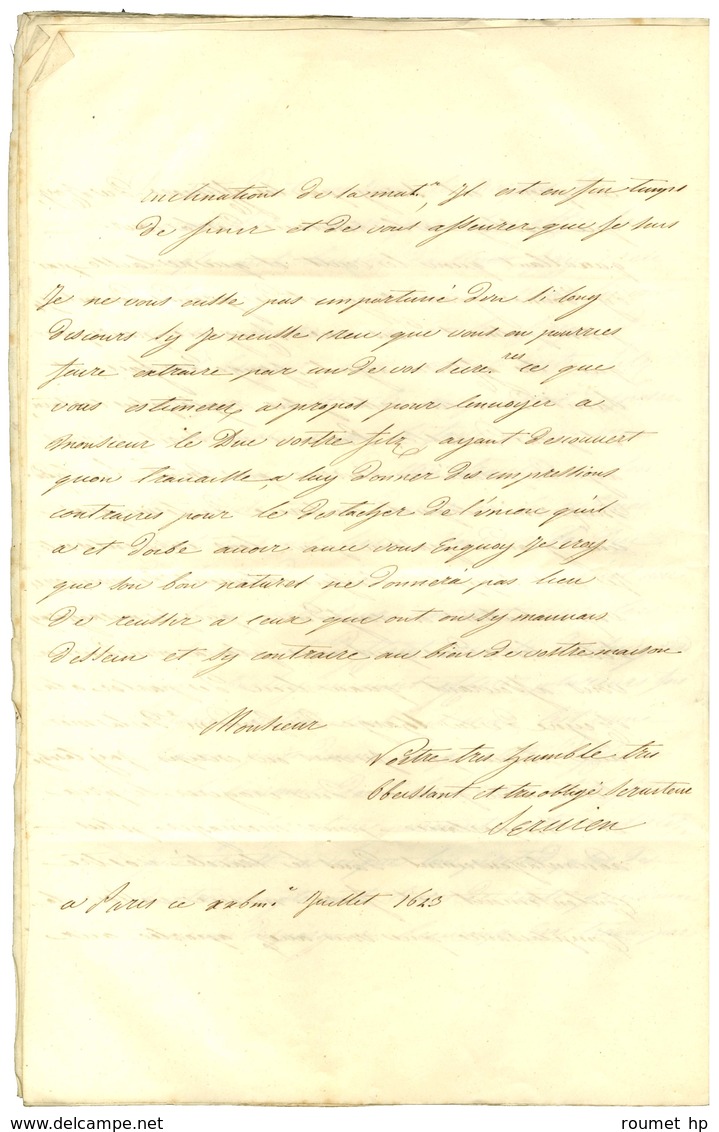 inclinations de sa mat.^e, Il est en fin temps
de finir et de vous asseurer que Je suis
Je ne vous eusse pas importuné d'un si long
discours sy Je neusse creu que vous en pourries
faire extraire par un de vos secre.^res ce que
vous estimerez a propos pour lenvoyer a
monsieur le Duc vostre filz, ayant descouvert
quon travaille a luy donner des impressions
contraires pour le destacher de l'union quil
a et doibt avoir avec vous Enquoy Je croy
que son bon naturel ne donnera pas lieu
de reussir a ceux que ont un sy mauvais
dessein et sy contraire au bien de vostre maison
Monsieur
Vostre tres humble tres
Obeissant et tres obligé serviteur
Servien
a Paris ce Juillet 1623
roumet hp